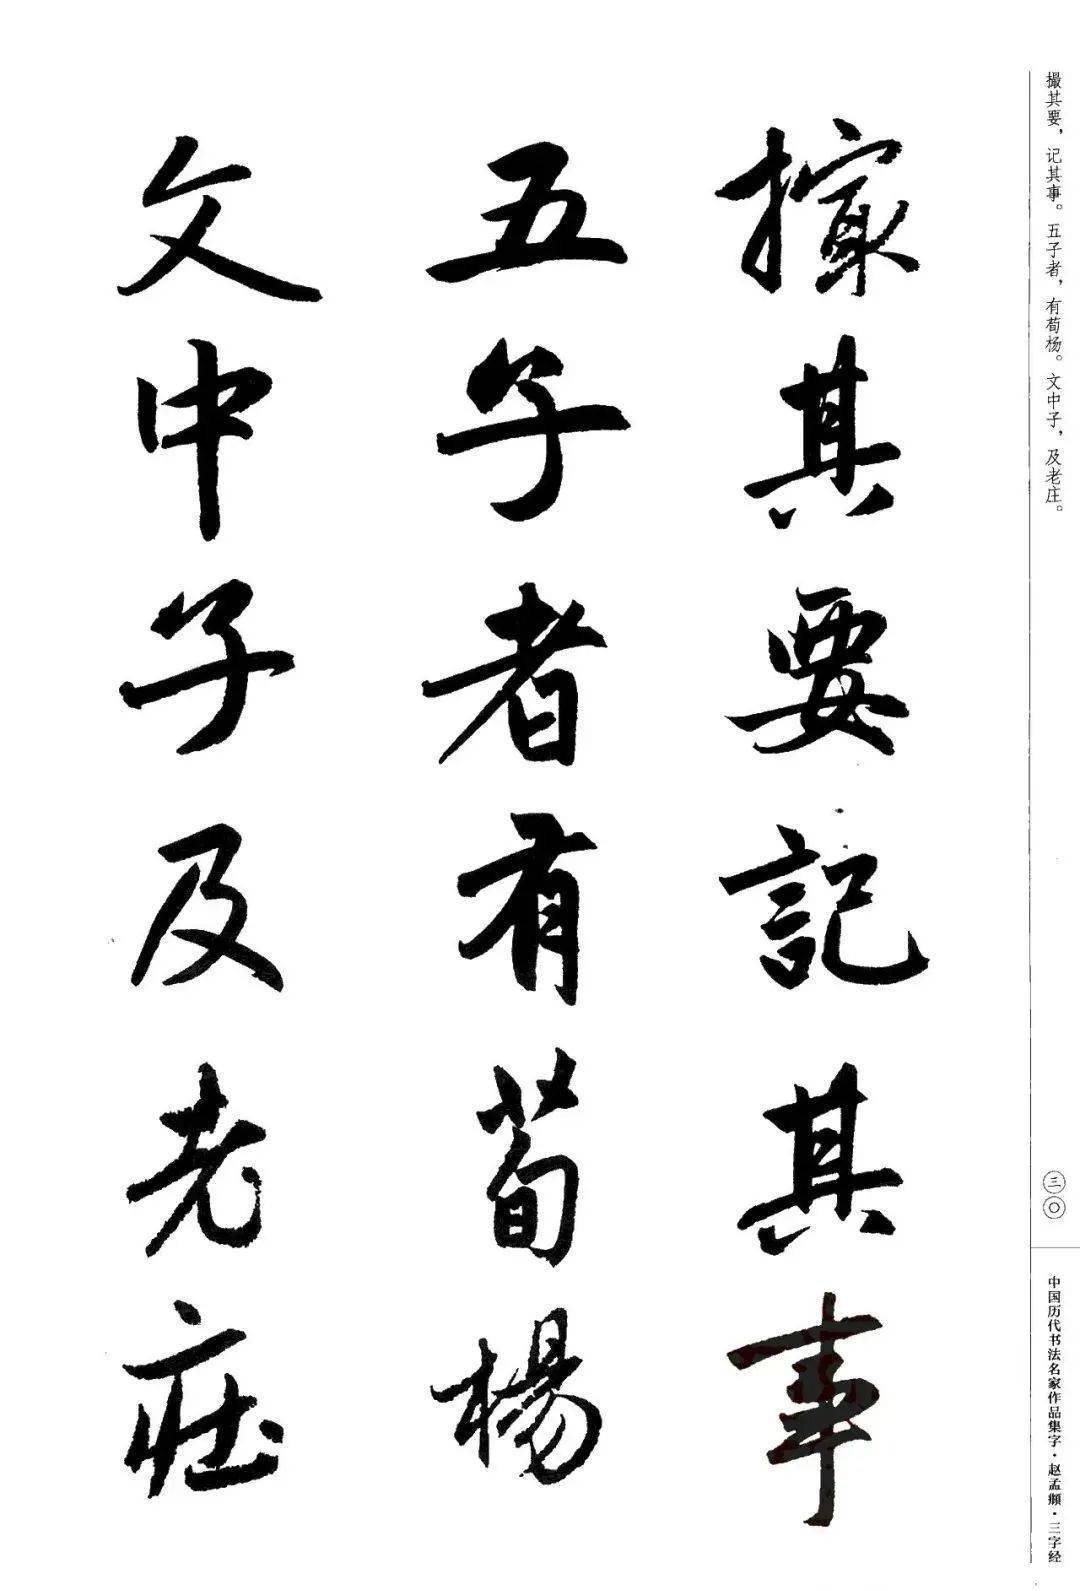 撮其要，记其事。五子者，有荀杨。文中子，及老庄。
撮其要記其事
五子者有荀楊
文中子及老庄
三〇
中国历代书法名家作品集字·赵孟頫·三字经